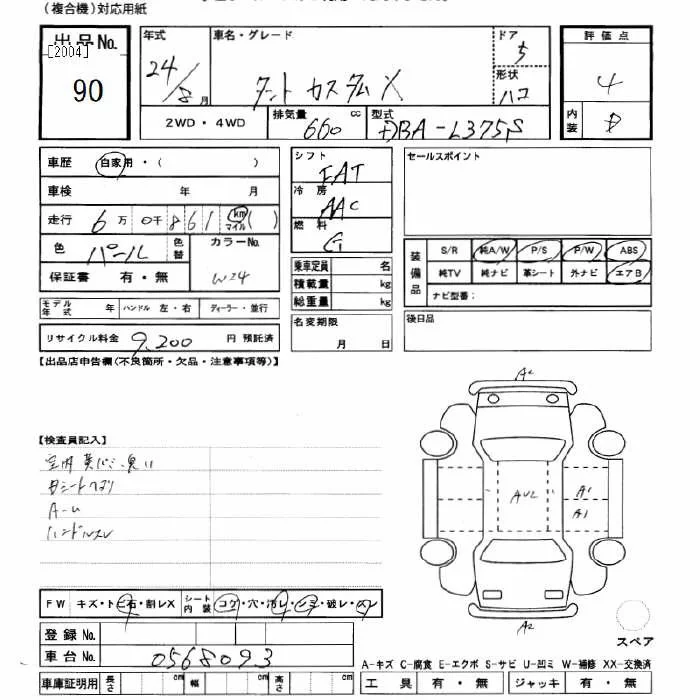 (複合機)対応用紙
出品No.
[2004]
90
年式
24/8 月
車名・グレード
タント カスタムX
ドア
5
形状
ハコ
評価点
4
内装
B
2WD・4WD
排気量 660 cc
型式 DBA-L375S
車歴 自家用・( )
車検 年 月
走行 6万0千861 km マイル ( )
色 パール 色替
カラーNo. W24
保証書 有・無
モデル年式 年 ハンドル 左・右 ディーラー・並行
リサイクル料金 9,200 円 預託済
シフト FAT
冷房 AAC
燃料 G
乗車定員 名
積載量 kg
総重量 kg
名変期限
月 日
セールスポイント
装備品
S/R 純A/W P/S P/W ABS
純TV 純ナビ 革シート 外ナビ エアB
ナビ型番:
後日品
【出品店申告欄(不良箇所・欠品・注意事項等)】
【検査員記入】
A-U
ハンドルスレ
A2
AU2
A1
A1
A2
スペア
FW キズ・トビ石・割レX シート内装 コゲ・穴・汚レ・シミ・破レ・スレ
登録No.
車台No. 0568093
車庫証明用 長さ cm 幅 cm 高さ cm
A-キズ C-腐食 E-エクボ S-サビ U-凹ミ W-補修 XX-交換済
工具 有・無 ジャッキ 有・無